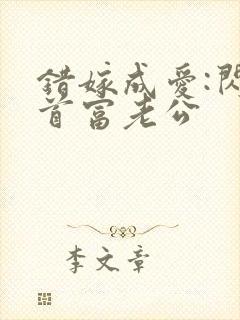 錯嫁成愛:閃
首富老公
李文章